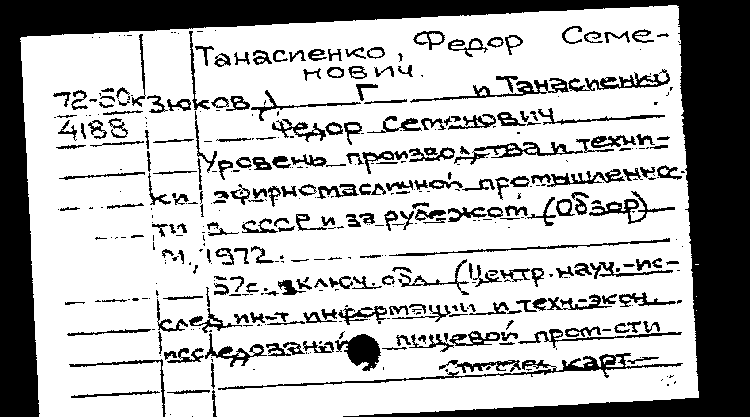 Танасиенко, Федор Семе-
нович.
72-50к Зюков, Д. Г. и Танасиенко
4188 Федор Семенович
Уровень производства и техни-
ки эфирномасличной промышленнос-
ти в СССР и за рубежом. (Обзор)
М., 1972.
57с. включ. обл. (Центр. науч.-ис-
след. ин-т информации и техн.-экон.
исследований пищевой пром-сти
карт.